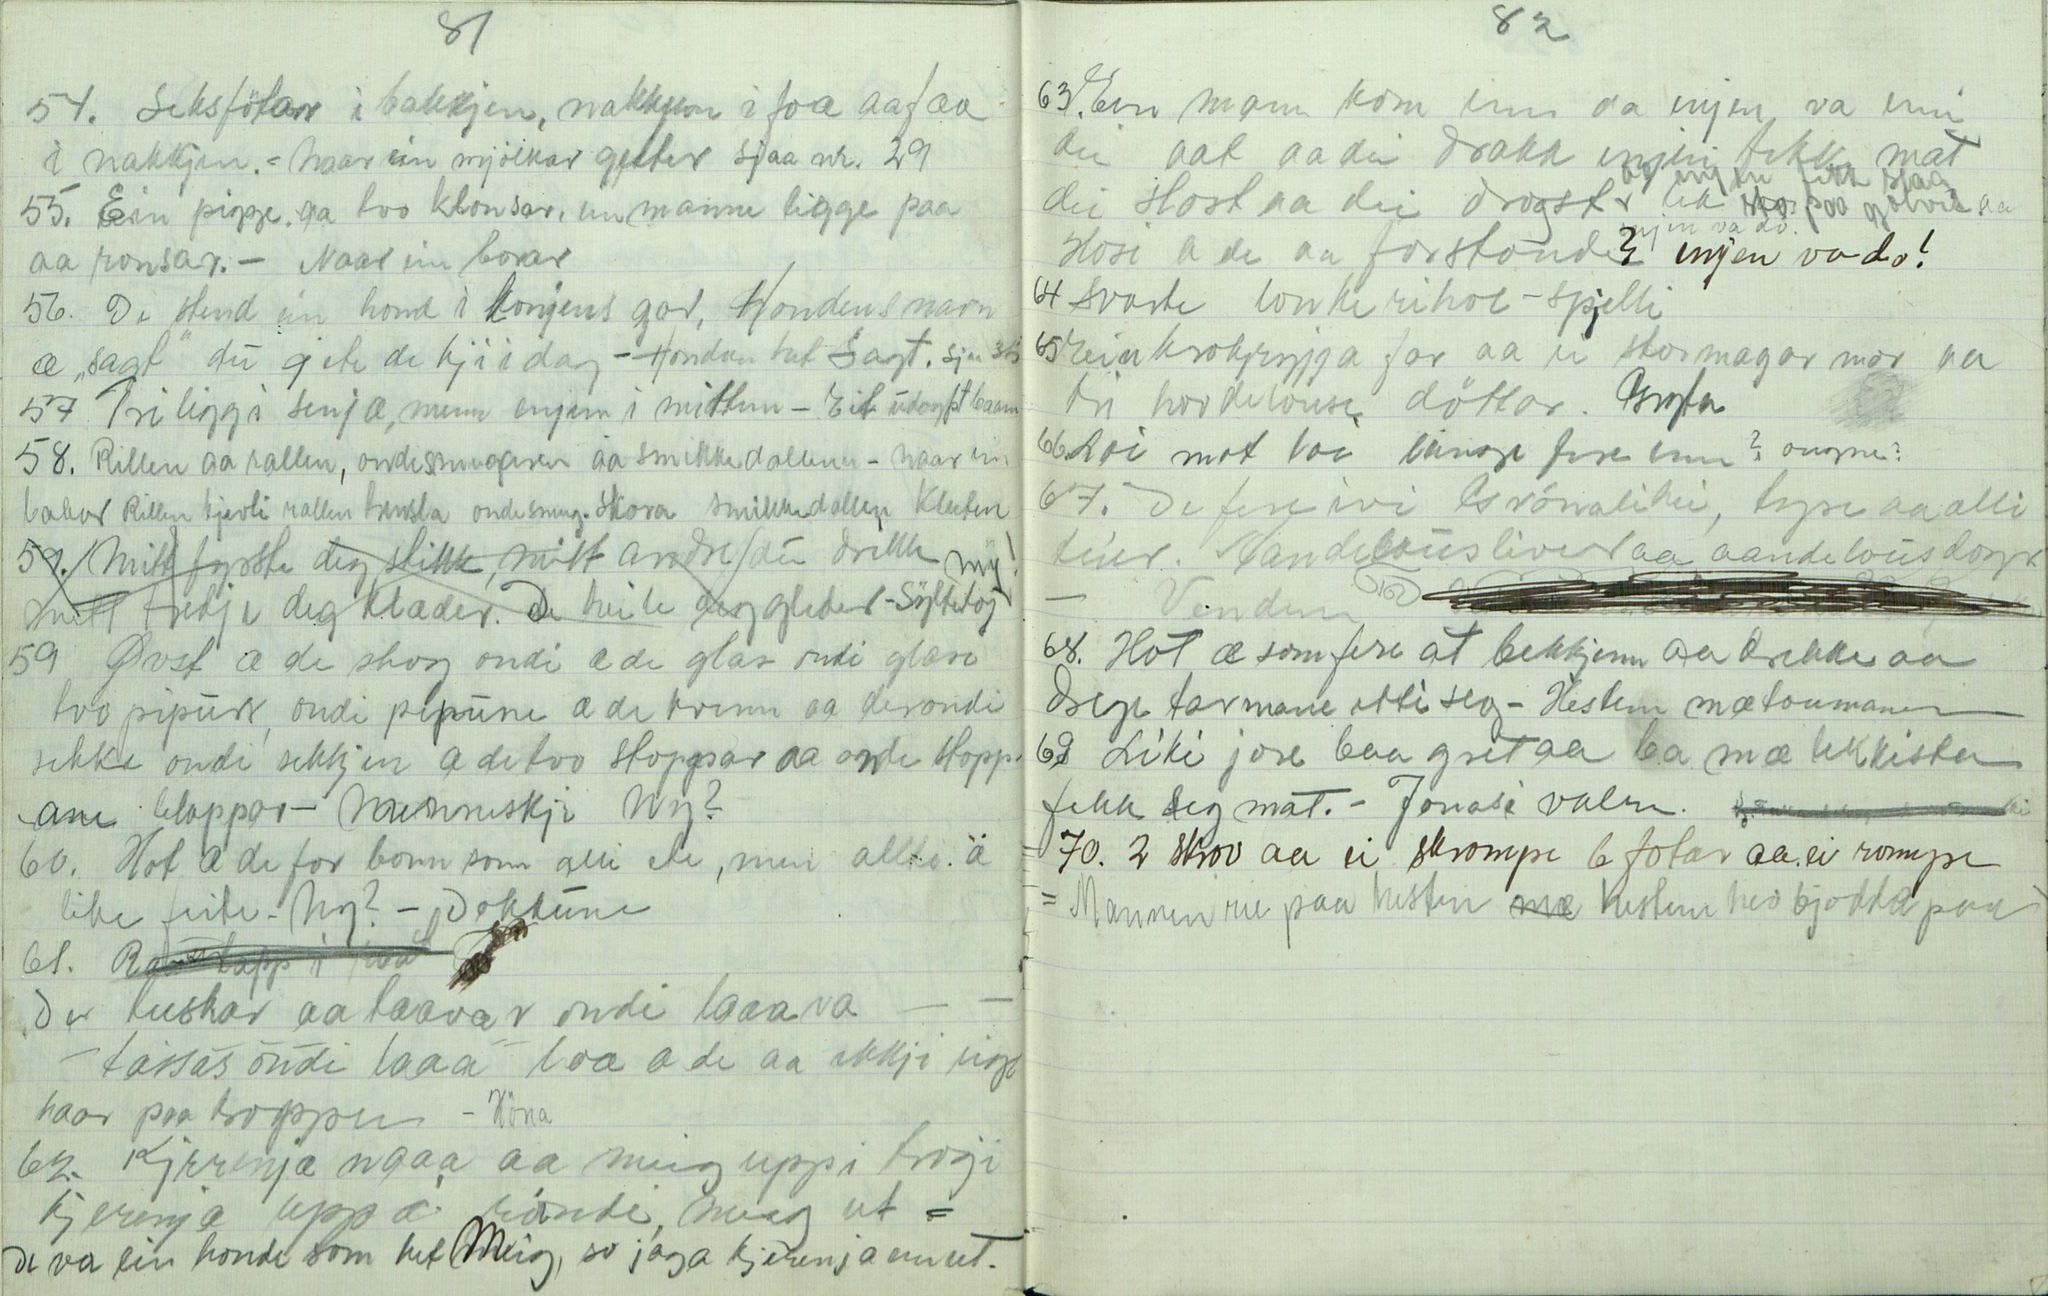 81
54. Seksfötar i bakkjen, nakkjen i foa aa faa
i nakkjen. - Naar ein mjölkar gjeter sjaa nr. 29
55. Ein pigge aa tvo klonsar, ein manne ligge paa
aa ronsar. - Naar ein borar
56. Di stend ein hond i kongens gar, Hondens navn
æ "sagt" du gjete de kji i dag - Honden het Sagt. sjaa
57 Tri ligg i senjæ, menn enjen i mitten - Eit udøypt baan
58. Rillen aa rallen, ondesmugaren aa smikkedallen - naar ein
bakar Rillen kjevli rallen ondesmug. Skora smikkedallen Kleeten
59. Mitt fyrste deg stikk, mitt andre du drikk
mitt tredje deg klæder. De heile deg gleder - Syltetøj
59 Øvst æ de skog ondi æ de glas ondi glase
tvo pipur, ondi pipune æ de krenn aa derondi
sekke ondi sekkjen æ de tvo stoppar aa onde stopp.
ane klappar - Menneskje Ny?
60. Hot æ de for bonn som alli ete, men allti æ
like feite - Ny? - Dokkune
61.
Der tuskar aa taavar ondi laava
- tassas ondi laaa loa æ de aa ikkji eige
haar paa kroppen - Höna
62. Kjerenja naaa aa meig upp i trogi
kjerenja uppæ meig ut =
De va ein honde som het Meig, so jaga kjerenja en ut.
82
63. Ein mann kom inn da injen va inni
dei aat aa dei drakk injen fekk mat
dei slost aa dei drogst paa golvi aa
injen va do.
Hosi æ de aa forstonde? injen va do!
64 Svarte lonke rihoe - spjelli
65 Ein krokryggja far aa ei stormagar mor aa
tri hovdelouse döttar. Gryta
66. Loi mot loi leinge fire enn? ougne?
67. De fere ivi Grönalihei, type aa alli
teier. Aandelouslivera aa aandelousdøyr
- Vinden
68. Hot æ som fere at bekkjenn aa drekke aa
drege tarmane etti seg - Hesten mæ toumanen
69 Liti jore baa gret aa ba mæ likkista
fekk seg mat. - Jonasi valen.
70. 2 skrov aa ei skrompe 6 fotar aa ei rompe
= Mannen rie paa hesten mæ hesten hev bjödda paa